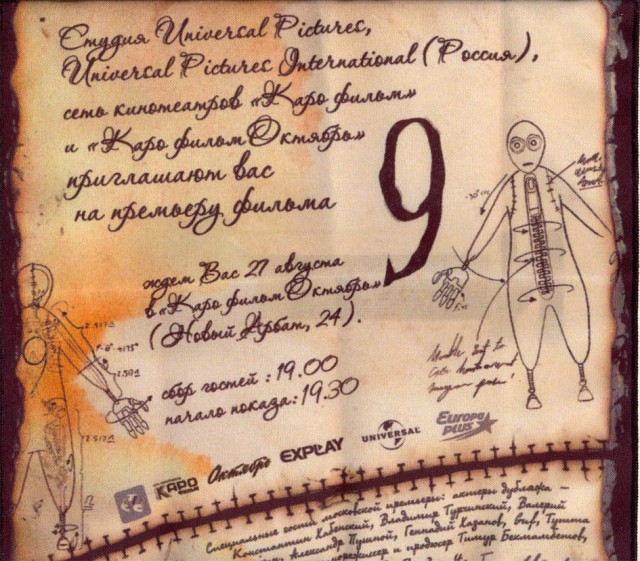 Студия Universal Pictures,
Universal Pictures International (Россия),
сеть кинотеатров «Каро фильм»
и «Каро фильм Октябрь»
приглашают вас
на премьеру фильма
9
ждем Вас 27 августа
в «Каро фильм Октябрь»
(Новый Арбат, 24).
сбор гостей : 19.00
начало показа: 19.30
КАРО
Октябрь
EXPLAY
UNIVERSAL
Европа
plus
Специальные гости московской премьеры: актеры дубляжа –
Константин Хабенский, Владимир Турчинский, Валерий
Александр Пушной, Геннадий Хазанов, Guf, Тутта
и продюсер Тимур Бекмамбетов,